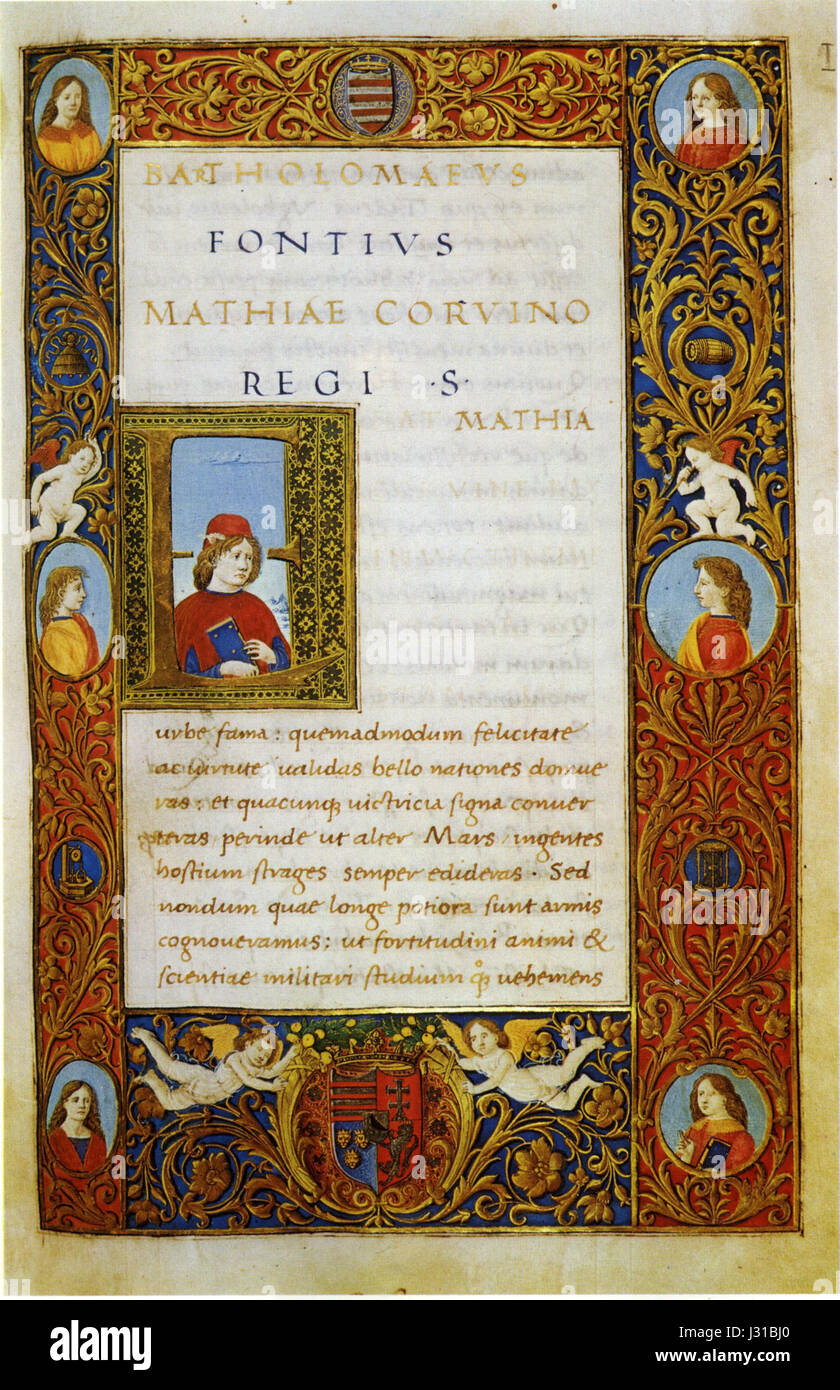 I
BARTHOLOMAEVS
FONTIVS
MATHIAE CORVINO
REGI ·S·
MATHIA
E
urbe fama: quemadmodum felicitate
ac virtute validas bello nationes domue
ras: et quacunq; victricia signa conver
teras perinde ut alter Mars ingentes
hostium strages semper edideras. Sed
nondum quae longe potiora sunt armis
cognoveramus: ut fortitudini animi &
scientiae militari studium vehemens
alamy stock photo
alamy
Image ID: J31BJ0
www.alamy.com